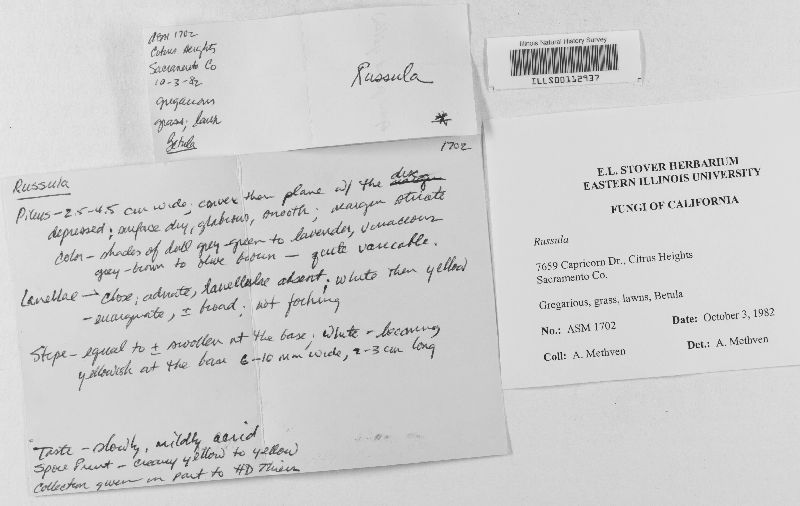 ASM 1702
Citrus Heights
Sacramento Co
10-3-82
gregarious
grass; lawn
Betula
Russula
1702
Russula
Pileus - 2.5-4.5 cm wide; convex then plane w/ the disc
depressed; surface dry, glabrous, smooth; margin striate
color - shades of dull grey-green to lavender, vinaceous
grey-brown to olive brown - quite variable.
Lamellae - close; adnate, lamellulae absent; white then yellow
- emarginate, ± broad; not forking
Stipe - equal to ± swollen at the base; white - becoming
yellowish at the base 6-10 mm wide, 2-3 cm long
Taste - slowly, mildly acrid
Spore Print - creamy yellow to yellow
Collection given in part to HD Thiers
Illinois Natural History Survey
ILLS00112937
E.L. STOVER HERBARIUM
EASTERN ILLINOIS UNIVERSITY
FUNGI OF CALIFORNIA
Russula
7659 Capricorn Dr., Citrus Heights
Sacramento Co.
Gregarious, grass, lawns, Betula
No.: ASM 1702 Date: October 3, 1982
Coll: A. Methven Det.: A. Methven